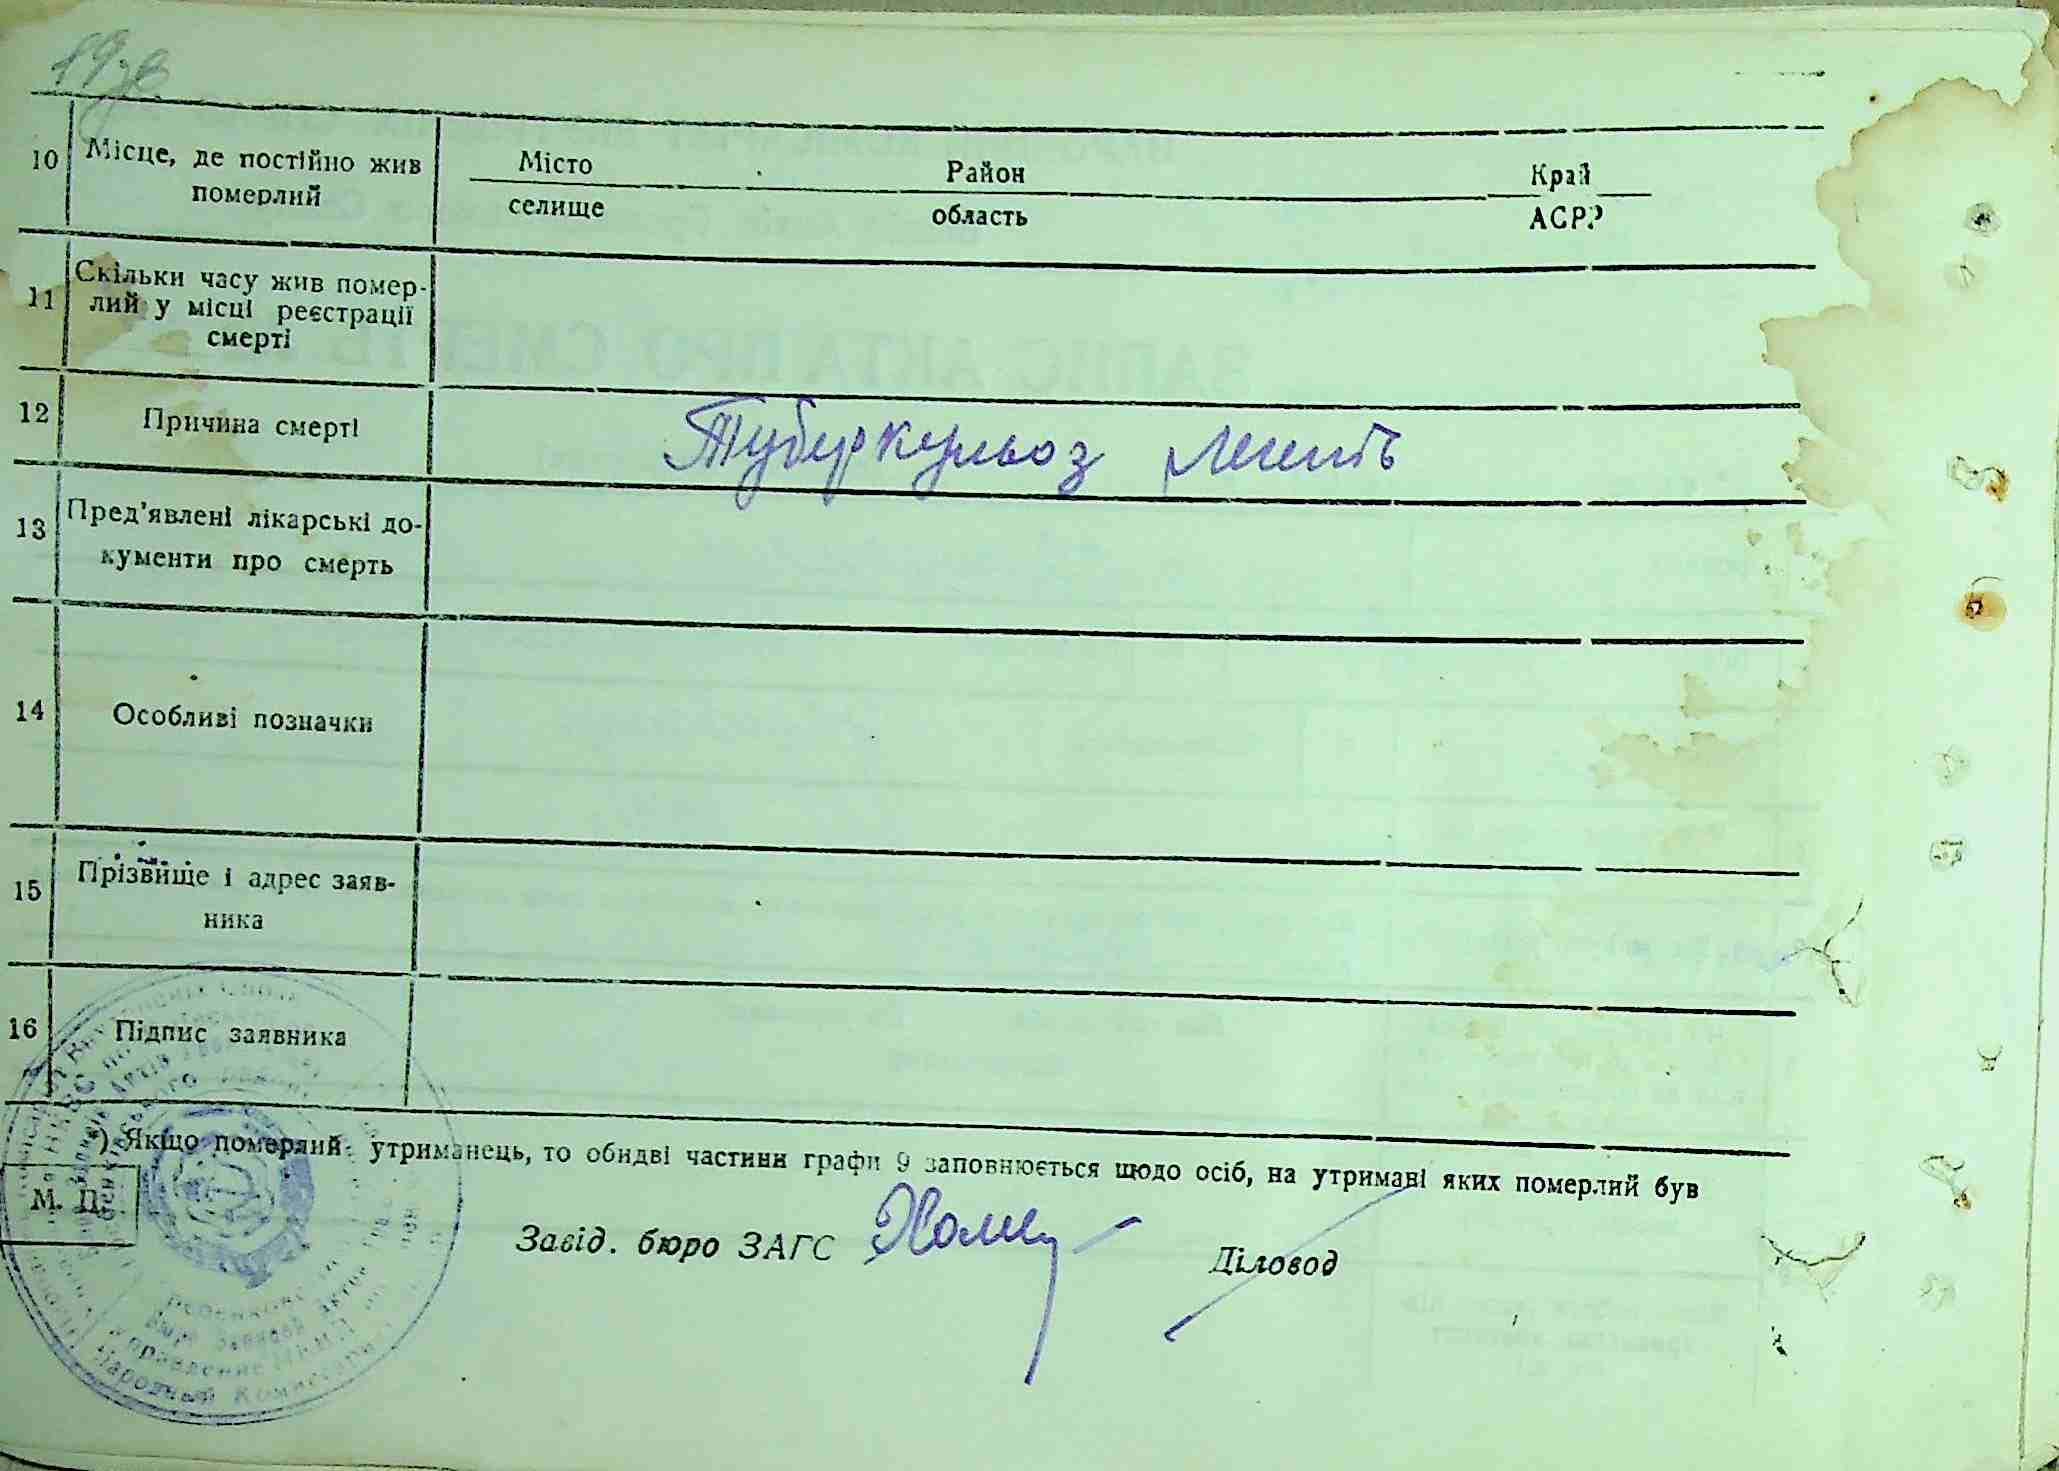 19зв
10 Місце, де постійно жив померлий
Місто Район Край
селище область АСРР
11 Скільки часу жив помер-
лий у місці реєстрації
смерті
12 Причина смерті Туберкульоз легенів
13 Пред'явлені лікарські до-
кументи про смерть
14 Особливі позначки
15 Прізвище і адрес заяв-
ника
16 Підпис заявника
) Якщо померлий утриманець, то обидві частини графи 9 заповнюється щодо осіб, на утримані яких померлий був
М. П.
Завід. бюро ЗАГС Діловод
Народный Комиссариат